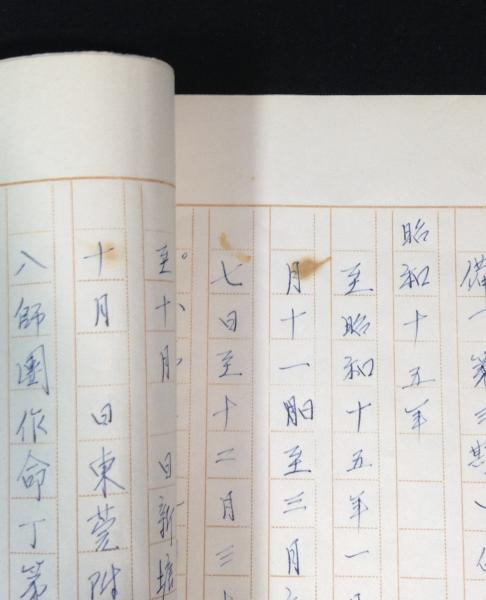 備一第三
昭和十五年
至昭和十五年一
月十一日至三月
七日至十二月三
至十月 日新
十月 日東莞附
八師團作命丁第